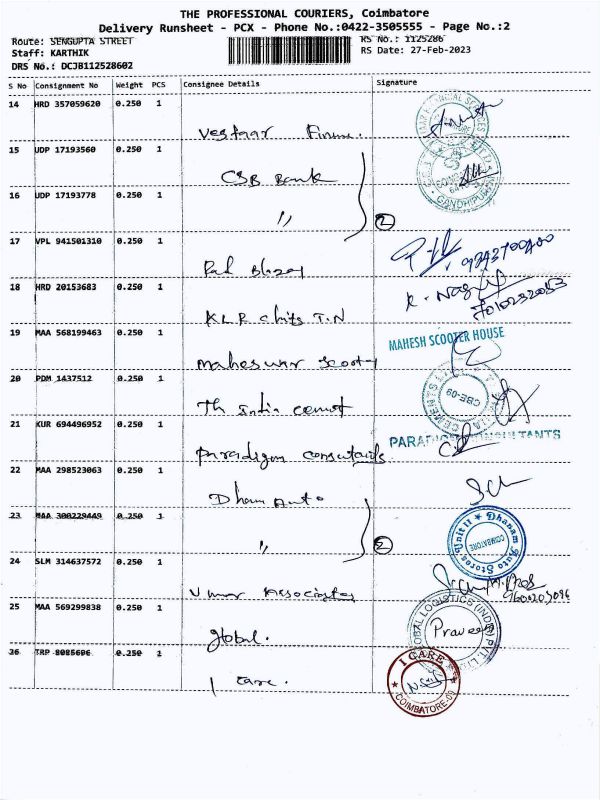 THE PROFESSIONAL COURIERS, Coimbatore
Delivery Runsheet - PCX - Phone No.:0422-3505555 - Page No.:2
Route: SENGUPTA STREET
RS No.: 1125286
Staff: KARTHIK
RS Date: 27-Feb-2023
DRS No.: DCJB112528602
S No Consignment No Weight PCS Consignee Details Signature
14 HRD 357059620 0.250 1
15 UDP 17193560 0.250 1
CSB Bank
16 UDP 17193778 0.250 1
" 2
17 VPL 941501310 0.250 1
18 HRD 20153683 0.250 1
K. Nag
KLR chits T.N
19 MAA 568199463 0.250 1
MAHESH SCOOTER HOUSE
20 PDM 1437512 0.250 1
CEMENTS CBE-09
21 KUR 694496952 0.250 1
PARADIGM CONSULTANTS
paradigm consultants
22 MAA 298523063 0.250 1
Auto
23 MAA 300229449 0.250 1
Dhanam Auto Stores Unit II COIMBATORE
" 2
24 SLM 314637572 0.250 1
Associates
25 MAA 569299838 0.250 1
GLOBAL LOGISTICS (INDIA) PVT. LTD
Praveen
global.
26 TRP 8085696 0.250 1
I CARE
COIMBATORE-09
I care.